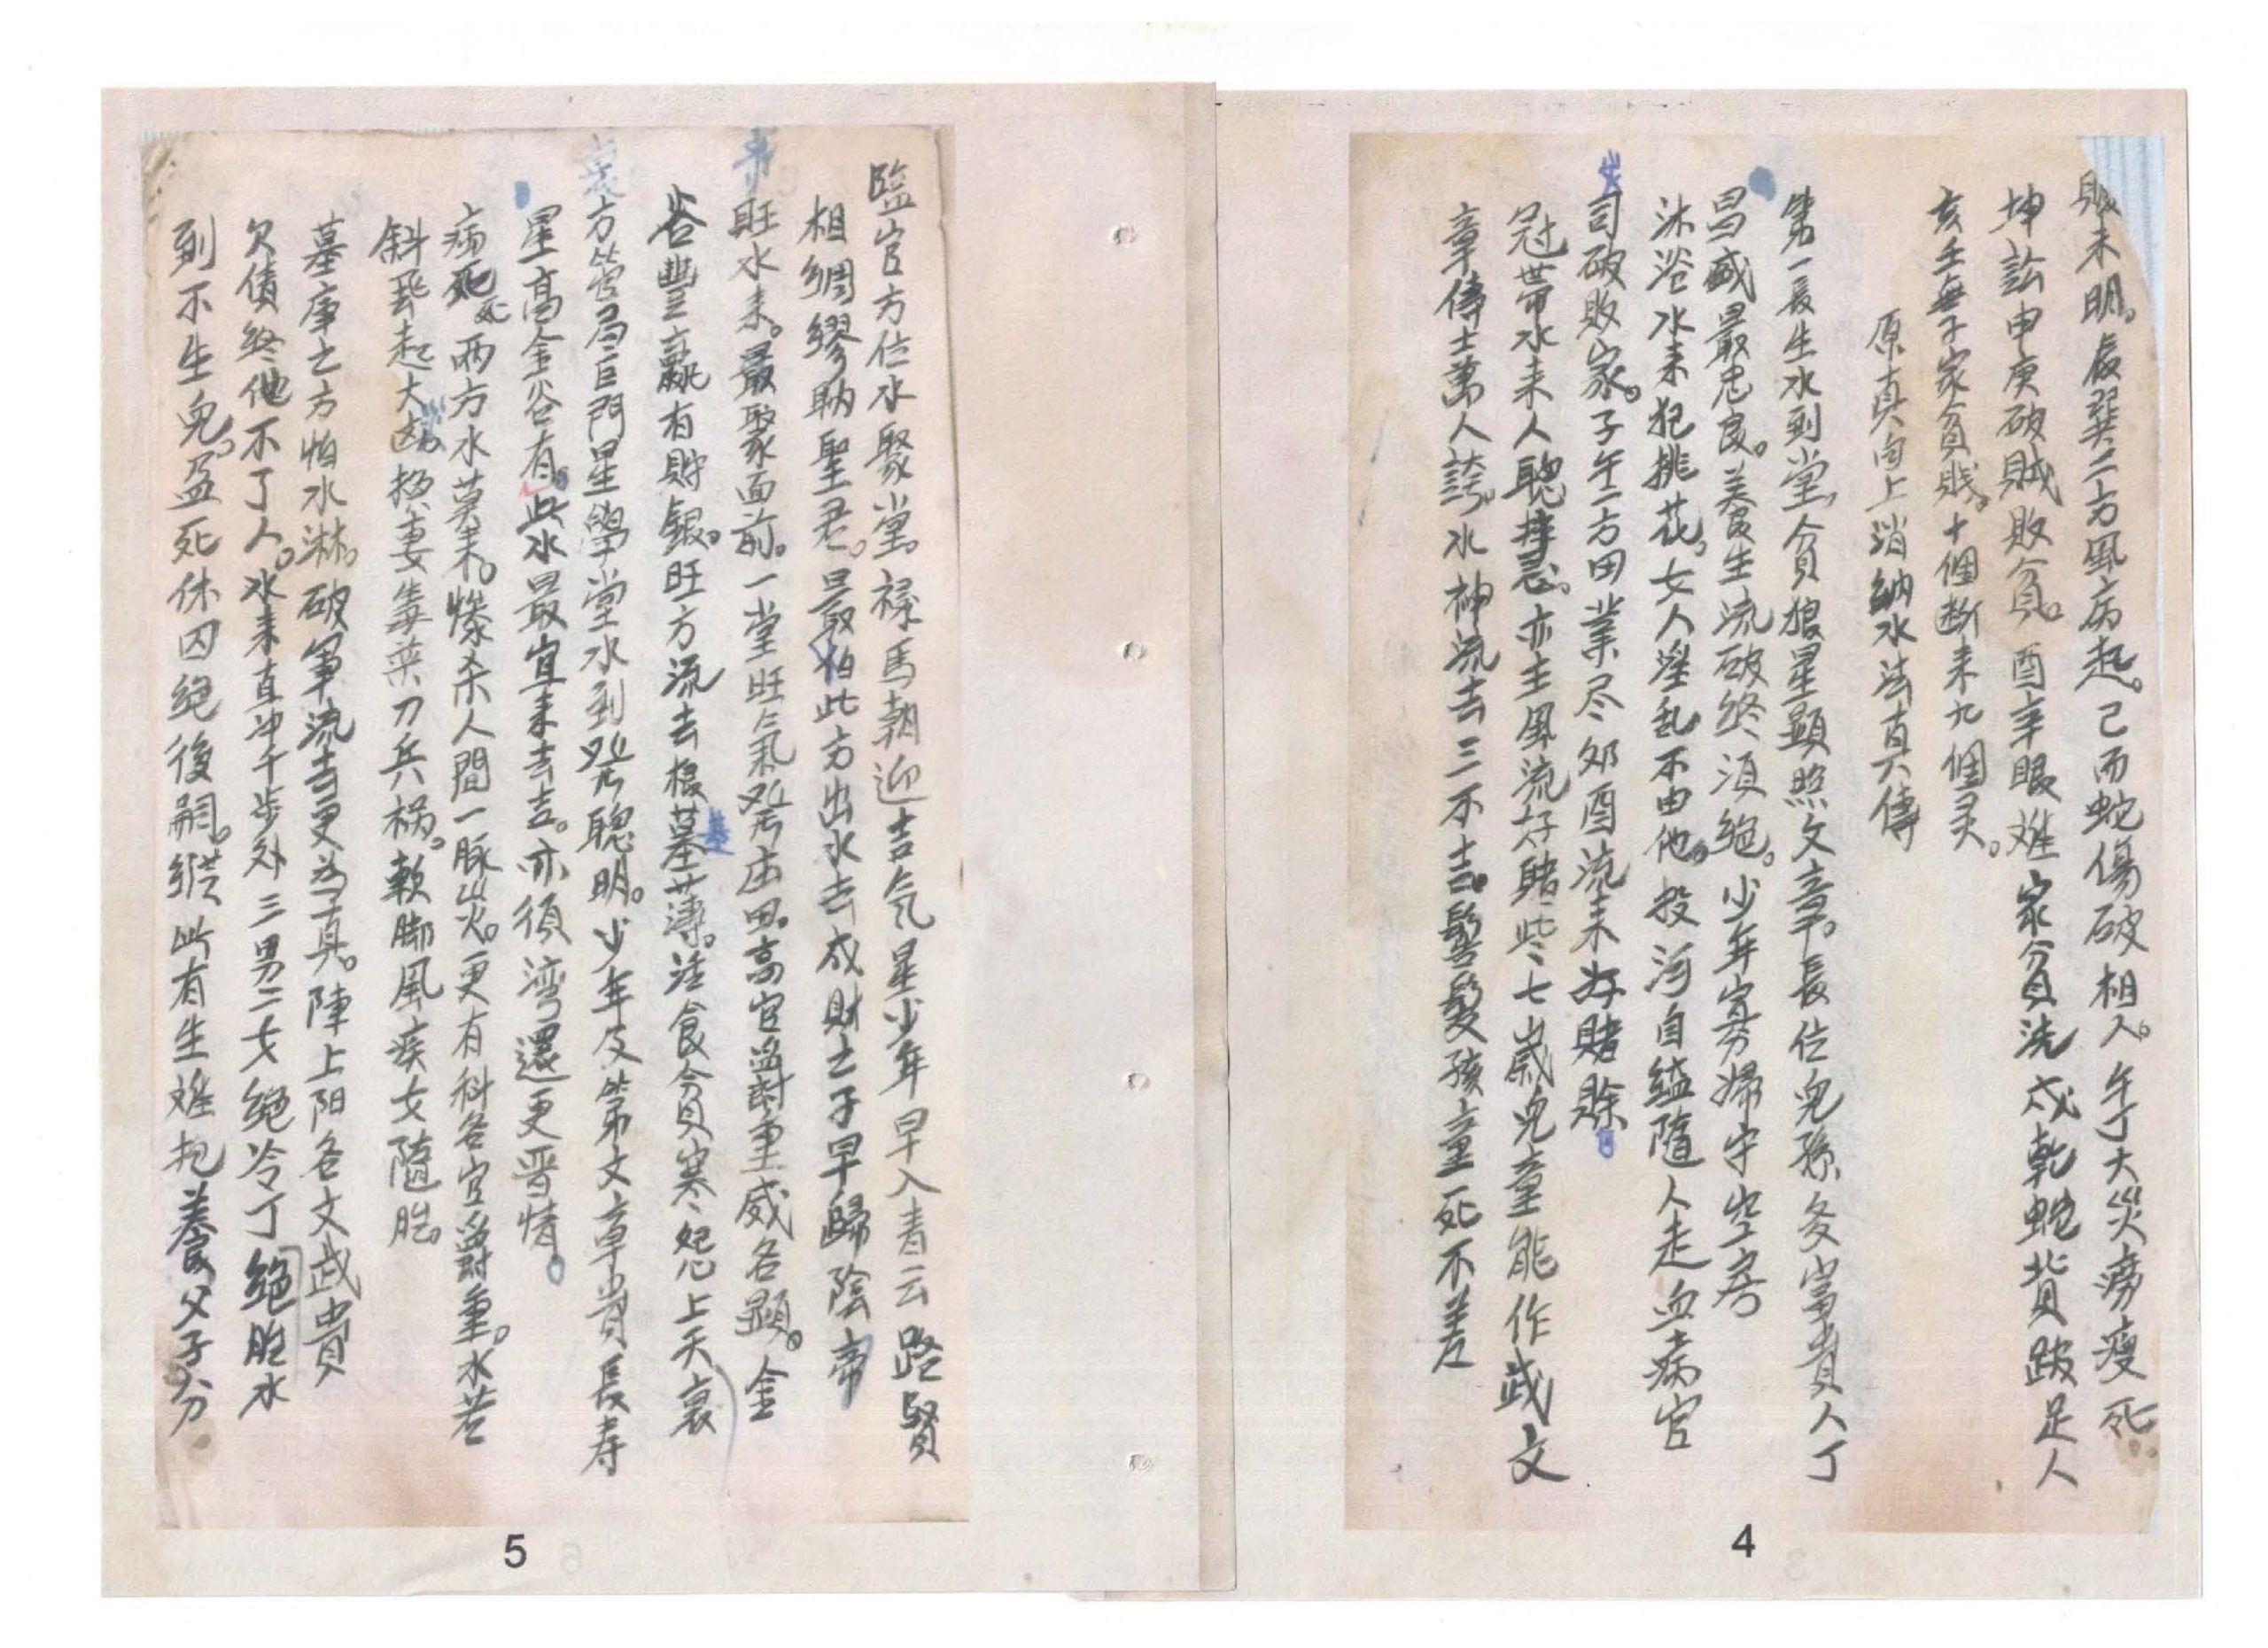 眼未明。辰巽二方風病起。己而蛇傷破相人。午丁大災癆瘦死
坤訟申庚破賊敗貧。酉辛眼难家貧洗戍乾蛇背跛足人
亥壬無子家貧賎。十個断来九個灵。
原真向上消納水法真傳
第一長生水到堂。貪狼星顯照文章。長位兒孫多富貴人丁
昌盛最忠良。養生流破終須絕。少年寡婦守空房
沐浴水来犯挑花。女人淫乱不由他。投河自縊隨人走血病官
司破敗家。子午二方田業尽卯酉流来好賭賒
災
冠帶水来人聰。亦主風流好賭些七歲兒童能作武文
章傳士萬人誇。水神流去三不吉。髫髮孩童死不差
4
臨官方位水聚堂。祿馬朝迎吉气星少年早入青云路賢
相綢繆聃聖君。最怕此方出水去成財士子早歸陰帝
旺水来。最聚面前。一堂旺气發庄田。高官爵重威名顯。金
帝
谷豐赢有財銀。旺方流去根墓薄。法食貪寒怨上天衰
基
方管局巨門星學堂水到發聰明。少年及第文章貴長寿
衰
星高金谷有。此水最宜来去吉。亦須湾還更晋情。
病死死两方水莫来。慘杀人間一脉災。更有科名官爵重。水若
斜飛起大凶投妻毒药刀兵祸。軟脚風疾女隨胎。
墓庫之方怕水淋。破軍流去更為真。陣上阳名文武貴
欠債終他不了人。水来直冲千步外三男二女絕冷丁絕胎水
到不生兒。孟死休囚絕後嗣。縱此有生难抱養父子分
5